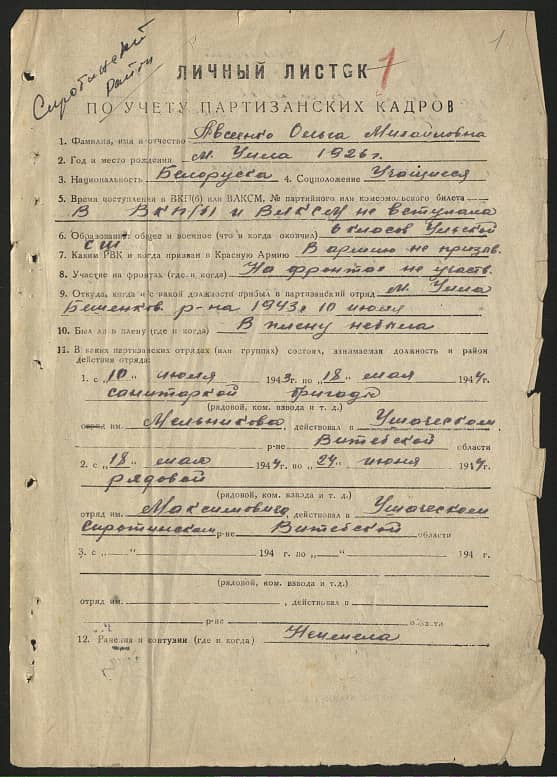 Сиротинский
район
1
ЛИЧНЫЙ ЛИСТОК 1
ПО УЧЕТУ ПАРТИЗАНСКИХ КАДРОВ
1. Фамилия, имя и отчество Авсеенко Ольга Михайловна
2. Год и место рождения м. Улла 1926 г.
3. Национальность Белоруска 4. Соцположение Учащаяся
5. Время поступления в ВКП(б) или ВЛКСМ, № партийного или комсомольского билета
В ВКП(б) и ВЛКСМ не вступала
6. Образование: общее и военное (что и когда окончил) 6 класов Ульской
СШ
7. Каким РВК и когда призван в Красную Армию В армию не призыв.
8. Участие на фронтах (где и когда) На фронтах не участв.
9. Откуда, когда и с какой должности прибыл в партизанский отряд м. Улла
Бешенков. р-на 1943 г 10 июля
10. Был ли в плену (где и когда) В плену небыла
11. В каких партизанских отрядах (или группах) состоял, занимаемая должность и район
действия отряда:
1. с „10" июля 1943 г. по „18" мая 1944 г.
санитаркой бригады
(рядовой, ком. взвода и т. д.)
отряд им. Мельникова, действовал в Ушаческом
р-не Витебской области
2. с „18" мая 1944 г. по „24" июня 1944 г.
рядовой
(рядовой, ком. взвода и т. д.)
отряд им. Максимовича, действовал в Ушаческом
Сиротинском р-не Витебской области
3. с „ " 194 г. по „ " 194 г.
(рядовой, ком. взвода и т.д.)
отряд им. , действовал в
р-не области
12. Ранения и контузии (где и когда) Неимела